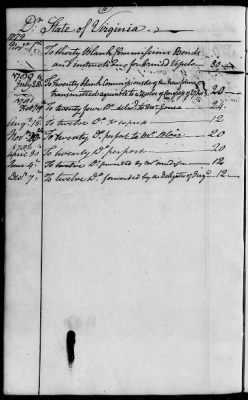 Dr. State of Virginia
1779
To thirty Blank Commissions Bonds
and Instructions for Armed Vessels 30
1780
July 20 To twenty blank Commissions &c of the new form
transmitted agreeable to a Resolve of Congress of 20
1781
To twenty four Do. deld. to Mr. Jones 24
Augt. 15 To twelve Do. 12
Novr. To twenty Do. per post to Mr. Blair 20
1782
April 30 To twenty Do. per post 20
June 4th. To twelve Do. forwarded by Mr. 12
Decr. 7th. To twelve Do. forwarded by the delegates of Virga. 12